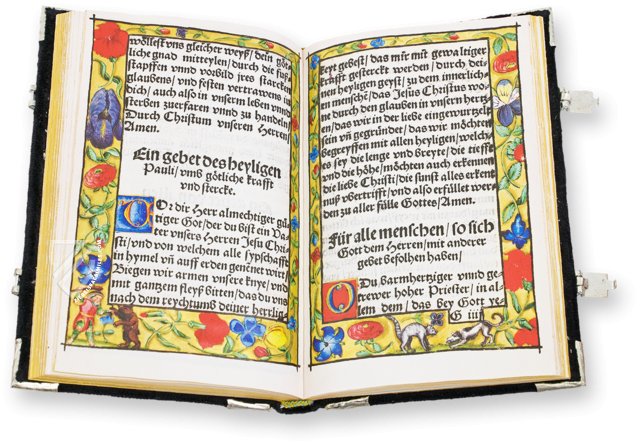 wöllest vns gleicher weyß/ dein göt-
liche gnad mitteylen/ durch die fuß
stapffen vnnd vorbild jres starcken
glaubens/ vnd festen vertrawens in
dich/ auch also in vnserm leben vnnd
sterben zuerfaren vnnd zu handeln/
Durch Christum vnseren Herren/
Amen.
Ein gebet des heyligen
Pauli/ vmb götliche krafft
vnd stercke.
O Dir Herr almechtiger gü-
tiger Got/ der du bist ein Va-
ter vnsers Herren Jesu Chri
sti/ vnd von welchem alle sypschafft
in hymel vn̄ auff erden genēnet wirt/
Biegen wir armen vnsere knye/ vnd
mit gantzem fleyß bitten/ das du vns
nach dem reychtumb deiner herrlig-
keyt gebest/ das wir mit gewaltiger
krafft gesterckt werden/ durch dei-
nen heyligen geyst/ zu dem innerlich-
en menschē/ das Jesus Christus wo
ne durch den glauben in vnsern hertz-
en/ das wir in der liebe eingewurtzelt
sein vn̄ gegründet/ das wir möchten
begreyffen mit allen heyligen/ welch-
es sey die lenge vnd breyte/ die tieffe
vnd die höhe/ möchten auch erkennen
die liebe Christi/ die sunst alles erkent
nuß vbertrifft/ vnd also erfüllet werd
den zu aller fülle Gottes/ Amen.
Für alle menschen/ so sich
Gott dem Herren/ mit anderer
gebet befolhen haben/
O Du barmhertziger vnnd ge-
trewer hoher Priester/ in al-
lem dem/ das bey Gott ze
G iiij